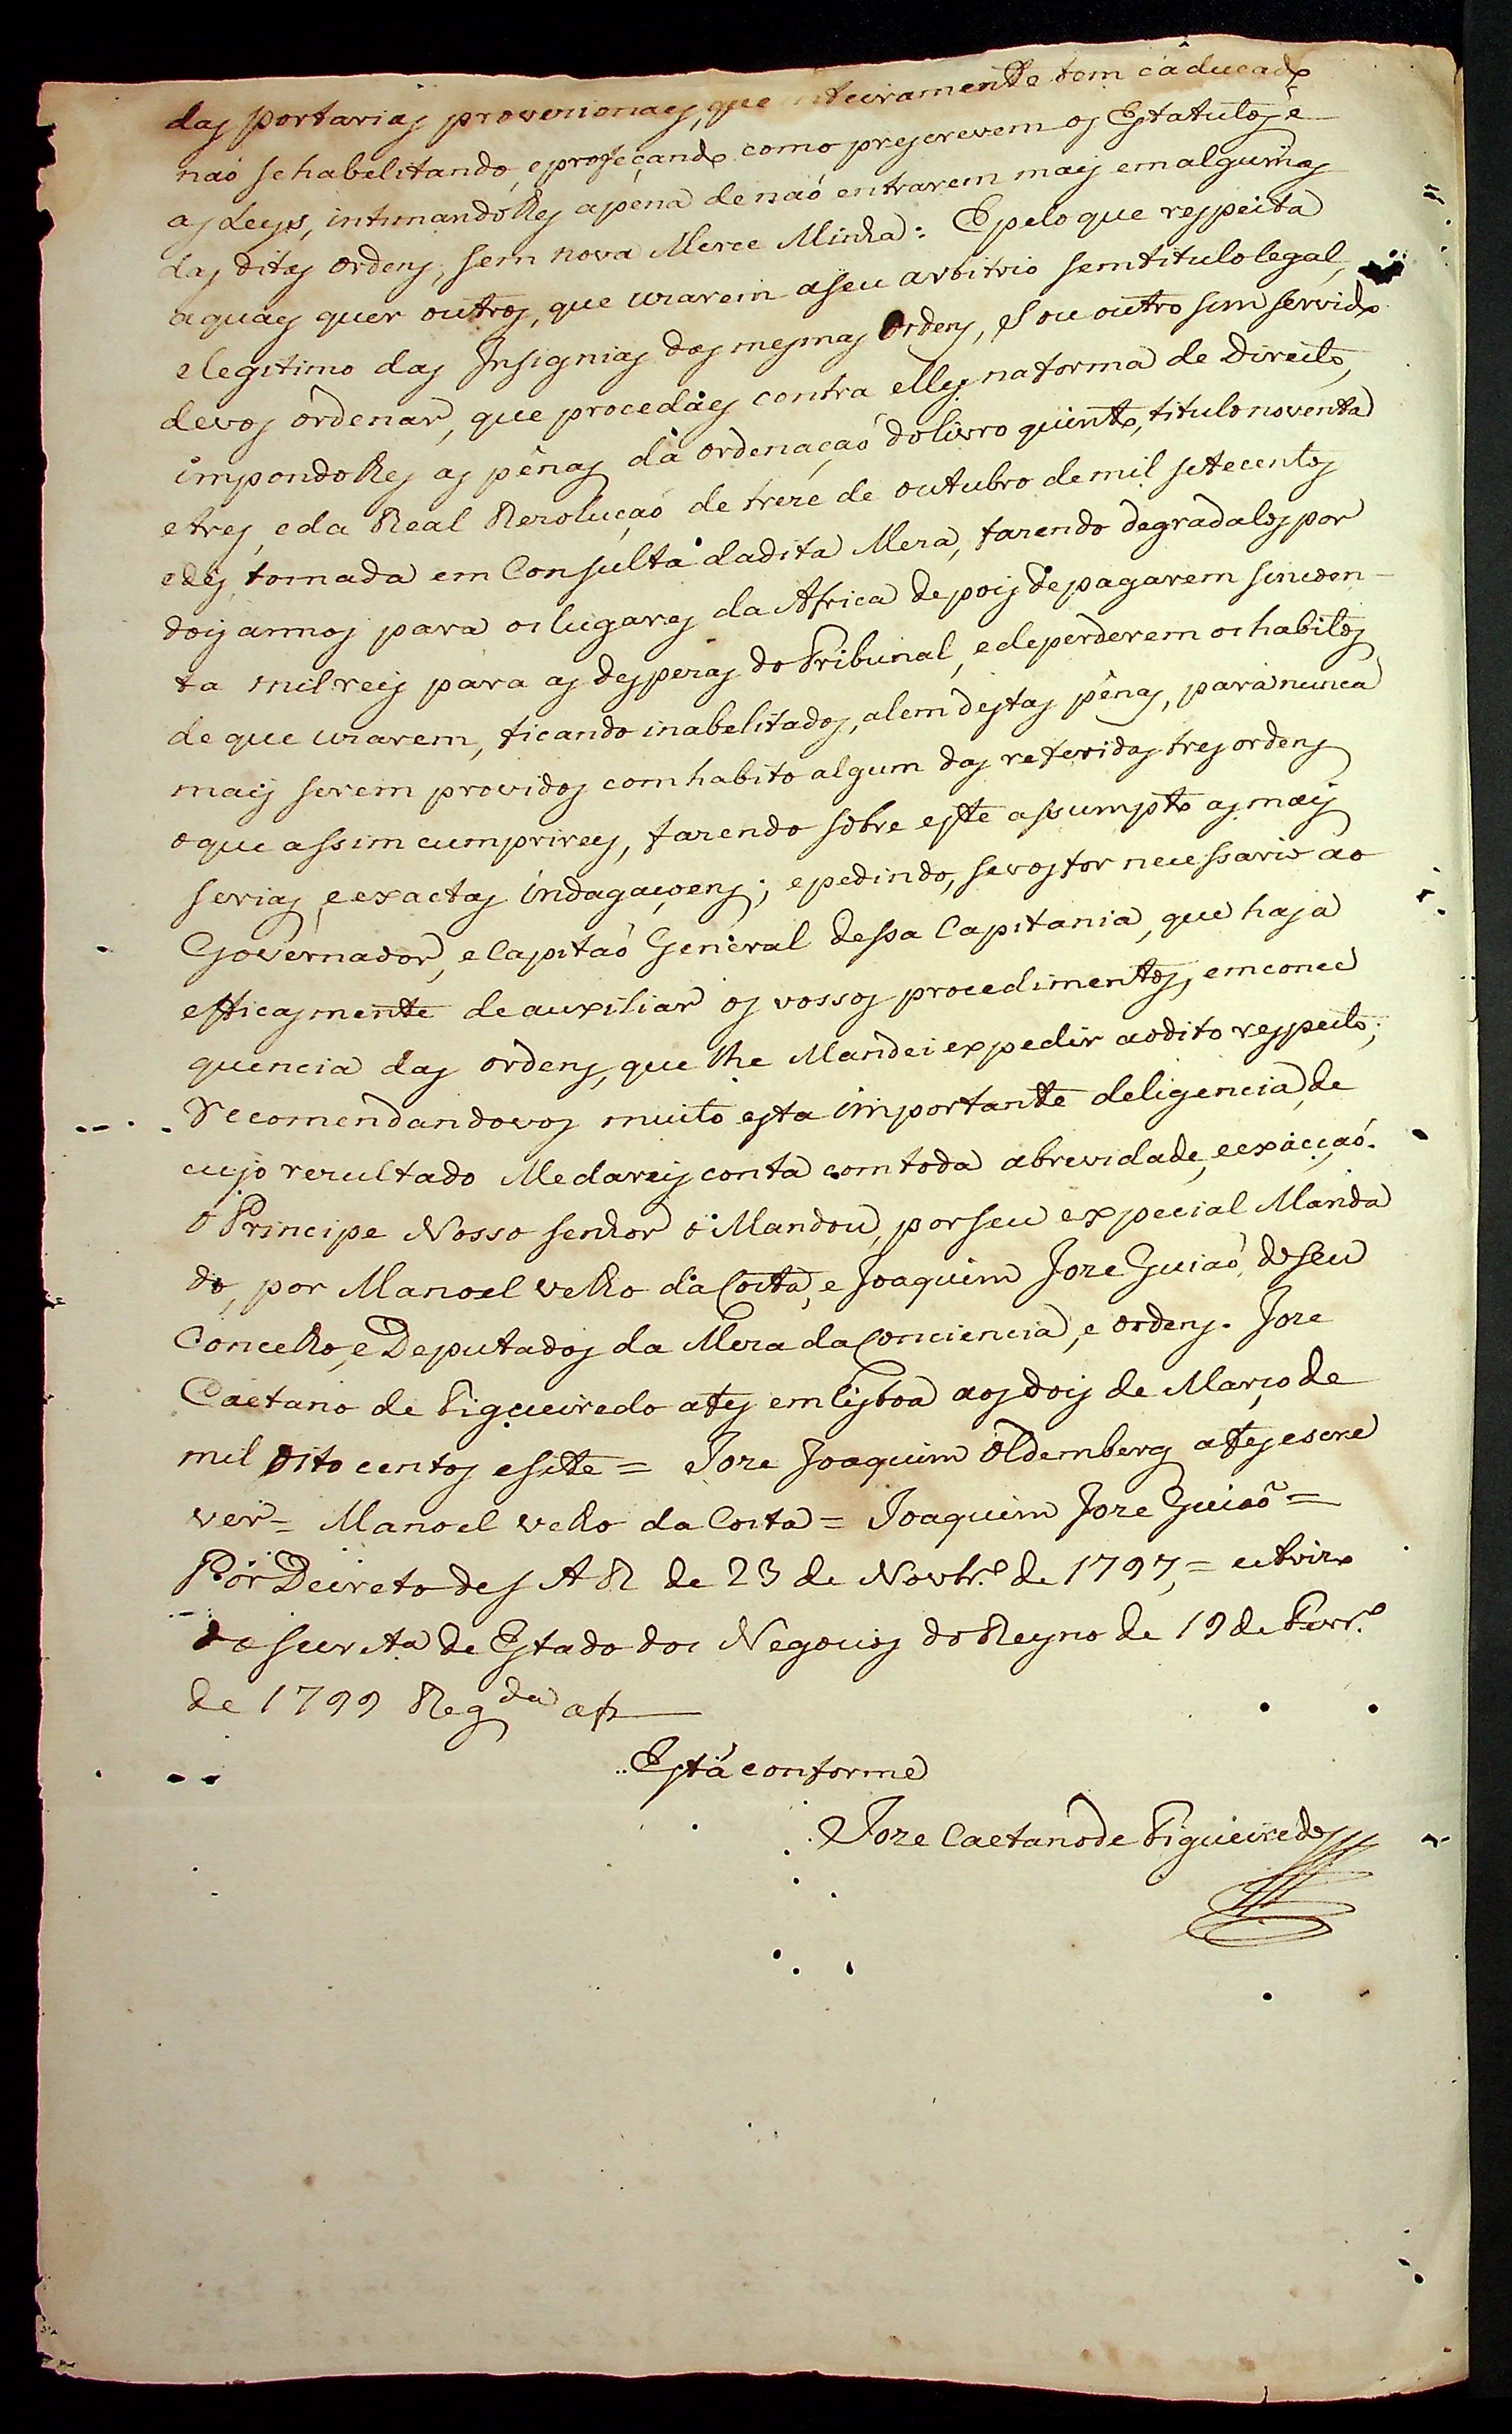 das portarias provezionaes, que inteiramente tem cáducado
naó sehabelitando, eprofeçando como prescrevem os Estatutos, e
as Leys, intimandolhes apena denaó entrarem mais emalgumas
das ditas ordens, sem nova Merce Minha: Epeloque respeita
aquaes quer outros, que uzarem aseu arbitrio semtitulolegal,
elegitimo das Insignias das mesmas Ordens, Sou outro sim servido
devos ordenar, que procedaes contra elles naforma de Direito,
impondolhes as pénas dá ordenaçaó dolivro quinto, titulonoventa
etres, eda Real Rezoluçaó de treze de outubro demil setecentos
edes, tomada em Consulta dadita Meza, fazendo degradalos por
dois annos para os lugares da Africa depois depagarem sincoen-
ta mil reis para as despezas do Tribunal, edeperderem os habitos
de que uzarem, ficando inabelitados, alem destas pénas, para nunca
mais serem providos comhabito algum das referidas tres ordens
oque assim cumprireis, fazendo sobre este assumpto as mais
serias, eexactas indagaçoens; epedindo, sevosfor necessario ao
Governador, eCapitaó General dessa Capitania, que haja
efficasmente deauxiliar os vossos procedimentos, emconce
quencia das ordens, que lhe Mandei expedir aodito respeito;
Recomendandovos muito esta importante deligencia, de
cujo rezultado Medareis conta comtoda abrevidade, eexacçaó.
O Principe Nosso Senhor o Mandou, porseu expecial Manda
do, por Manoel velho da Costa, e Joaquim Joze Guiaó, doseu
Concelho, e Deputados da Meza da Conciencia, e ordens. Joze
Caetano de Figueiredo afes emLisboa aos dois de Março de
mil oito centos esette = Joze Joaquim Oldemberg afes escre
ver = Manoel velho da Costa = Joaquim Joze Guiaõ =
Por Decreto de S A R de 23 de Novbr.º de 1797, = eAvizo
da Secret.ª de Estado dos Negocios do Reyno de 19 de Fevr.º
de 1799 Reg.da af
Está conforme
Joze Caetano de Figueiredo